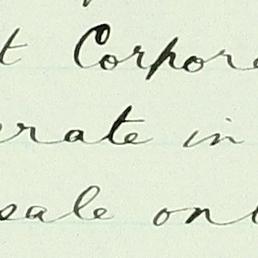 t Corpor
erate in
sale on